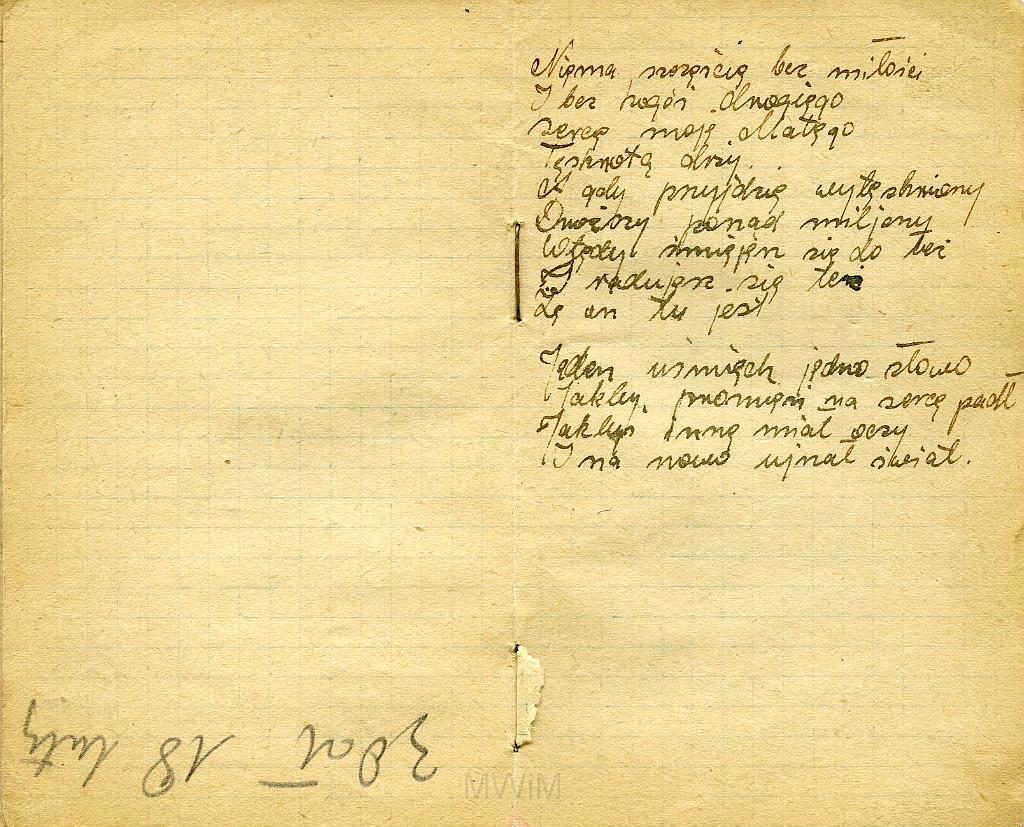 Niema szczęścia bez miłości
I bez kogóś drogięgo
Sercę moję dlatęgo
Tęsknotą drży.
A gdy przyjdzię wytęskniony
Droższy ponad miljony
Wtędy śmięjęsz się do łez
I radujęsz się też
Żę on tu jest
Jędęn uśmięch jędno słowo
Jakby promięń na sercę padł
Jakbyś innę miał oczy
I na nowo ujrzał świat.
3 Dał 18 luty
MWiM